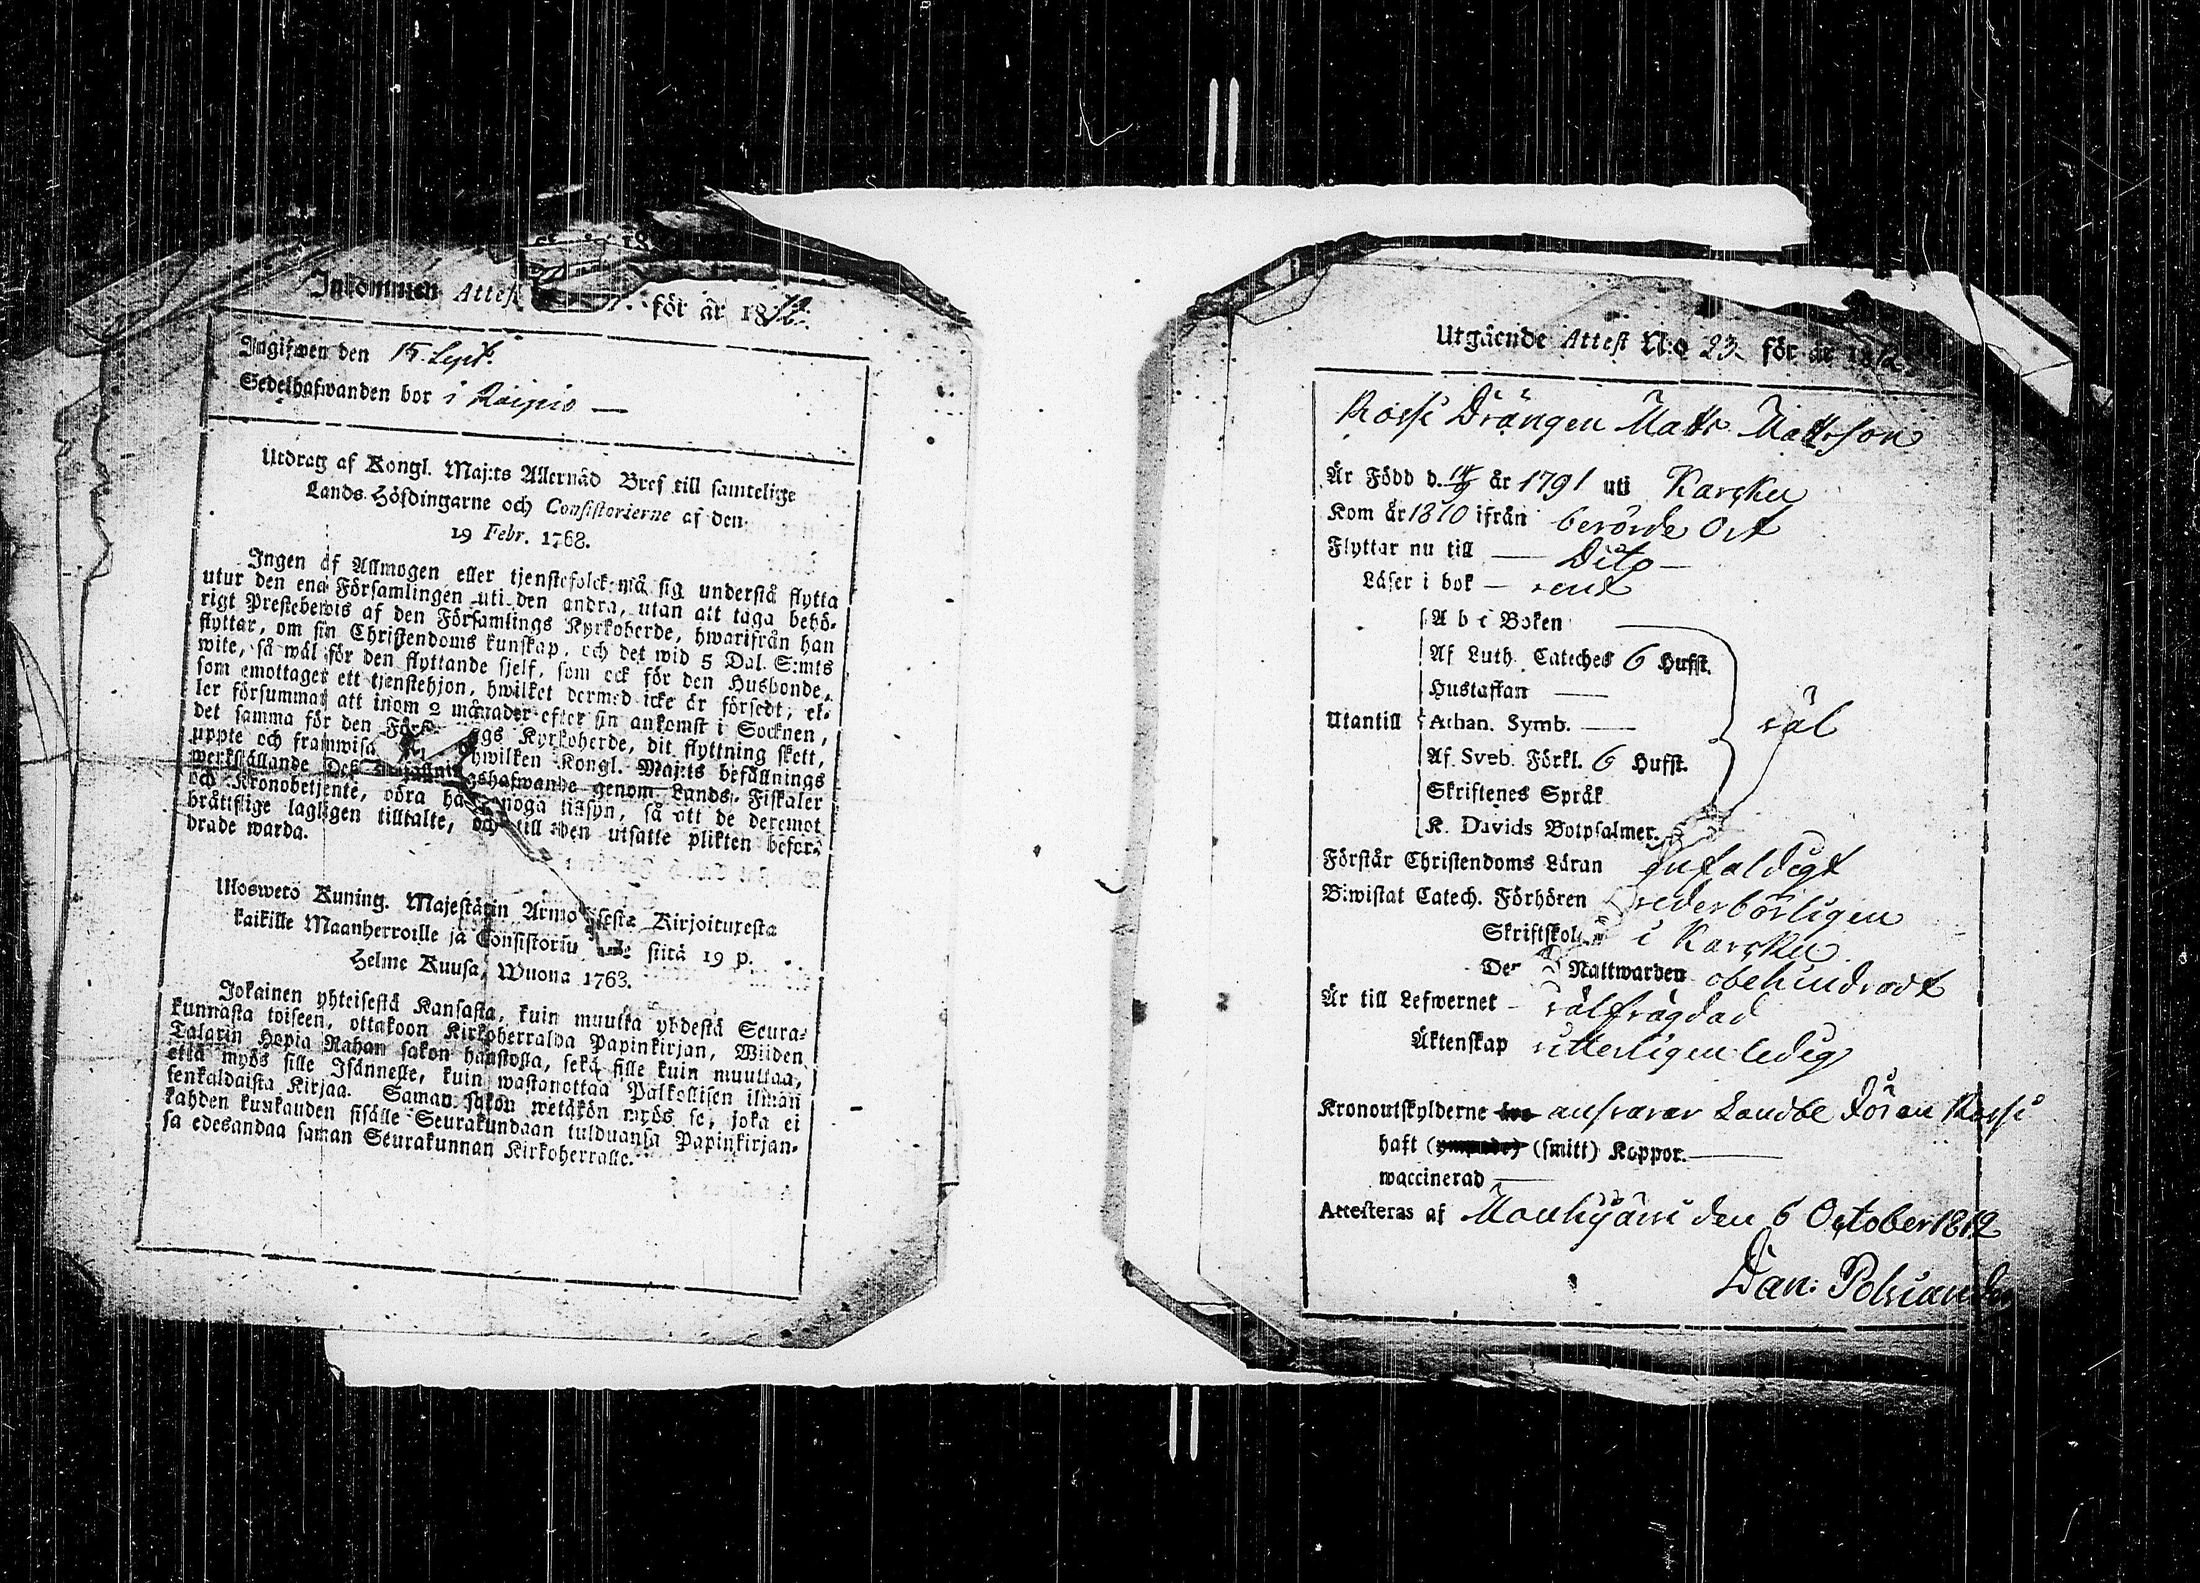 Inkommen Attest för år 1812.
Ingifwen den 15 Sept.
Sedelhafwanden bor i Raipio —
Utdrag af Kongl. Maj:ts Allernåd Bref till samtelige
Lands-Höfdingarne och Consistorierne af den
19 Febr. 1768.
Ingen af Allmogen eller tjenstefolck må sig understå flytta
utur den ena Församlingen uti den andra, utan att taga behö-
rigt Prestebewis af den Församlings Kyrkoherde, hwarifrån han
flyttar, om sin Christendoms kunskap, och det wid 5 Dal. S:mts
wite, så wäl för den flyttande sjelf, som ock för den Husbonde,
som emottager ett tjenstehjon, hwilket dermed icke är försedt, el-
ler försummar att inom 2 månader efter sin ankomst i Socknen,
det samma för den Kyrkoherde, dit flyttning skett,
uppte och framwisa hwilken Kongl. Maj:ts befallnings
werkställande genom Lands-Fiskaler
och Kronobetjente, noga tillsyn, så att de deremot
bråttslige lagligen tilltalte, och till den utsatte plikten befor-
drade warda.
Ulosweto Kuning. Majestätin Armo Kirjoituxesta
kaikille Maanherroille ja Consistoriu sittä 19 p.
Helme Kuusa, Wuona 1763.
Jokainen yhteisestä Kansasta, kuin muutta yhdestä Seura-
kunnasta toiseen, ottakoon Kirkoherralda Papinkirjan, Wiiden
Talarin Hopia Rahan sakon haastolla, sekä sille kuin muuttaa,
että myös sille Isännelle, kuin wastanottaa Palkollisen ilman
senkaldaista Kirjaa. Saman sakon wetäkön myös se, joka ei
kahden kuukauden sisälle Seurakundaan tulduansa Papinkirjan-
sa edesandaa saman Seurakunnan Kirkoherralle.
Utgående Attest N:o 23 för år 1812.
Rossi Drängen Matts Mattsson
Är Född d. år 1791 uti Karcku
Kom år 1810 ifrån berörde Ort
Flyttar nu till — Dito —
Läser i bok — rent
A b c Boken
Af Luth. Cateches 6 Hufst.
Hustaflan —
Utantill Athan. Symb. — väl
Af Sveb. Förkl. 6 Hufst.
Skriftenes Språk
K. Davids Botpsalmer.
Förstår Christendoms Läran enfaldigt
Biwistat Catech. Förhören vederbörligen
Skriftskolan i Karcku
Nattwarden obehindradt
Är till Lefwernet välfrägdad
Äktenskap vitterligen ledig
Kronoutskylderne ansvarar Landbo Jöran Rossi
haft (smitt) Koppor. —
waccinerad —
Attesteras af Mouhijärvi den 6 October 1812
Dan: Polviander